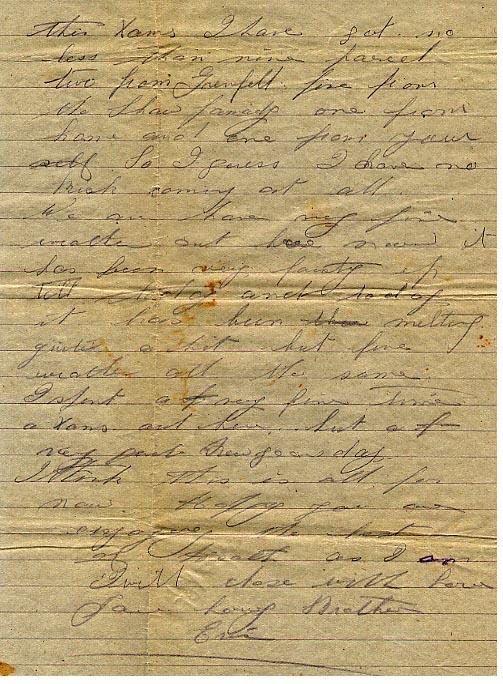 this Xams I have got no
less than nine parcel
two from Grenfell five from
the Shaw family one from
home and one from your
self So I guess I have no
kick coming at all.
We are have very fine
weather out here now it
has been very frosty up
till today and today
it has been melting
quite a bit but fine
weather all the same.
I spent a very fine time
a Xams out here but a
very quite Newyearsday
I think this is all for
now. Hoping you are
enjoying the best
of health as I am
I will close with love
Your loving Brother
Eric